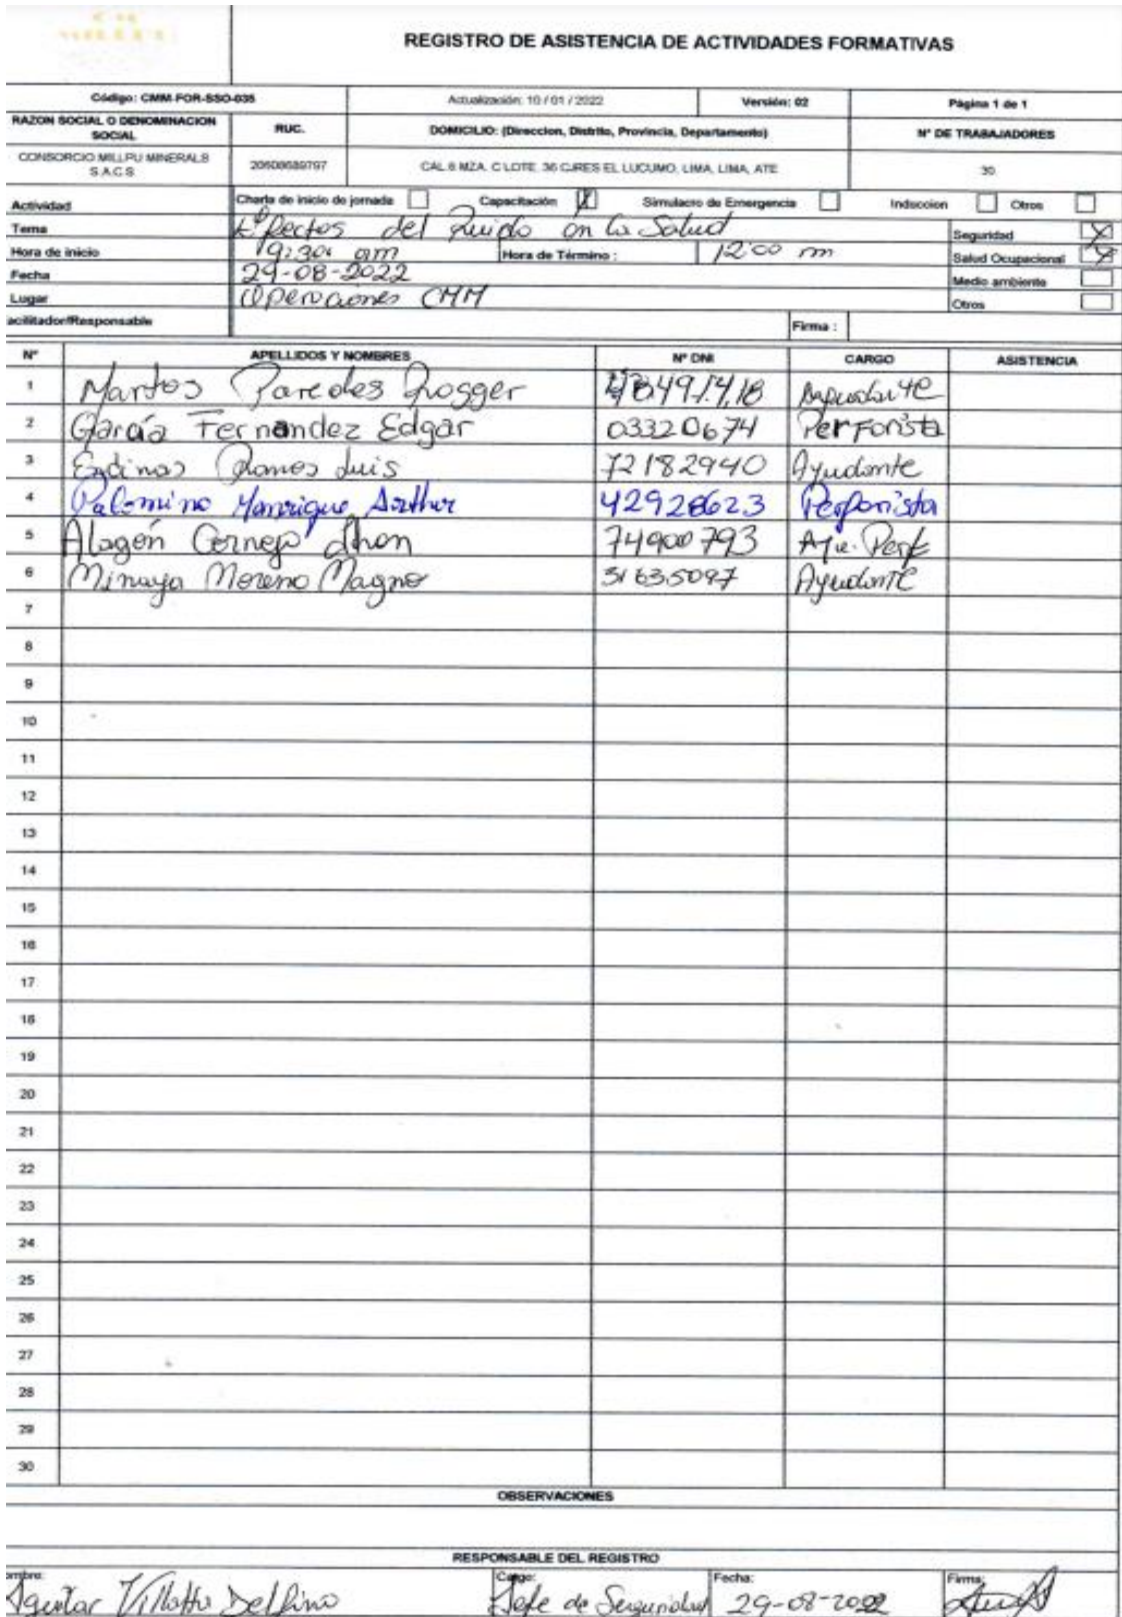 REGISTRO DE ASISTENCIA DE ACTIVIDADES FORMATIVAS
Código: CMM-FOR-SSO-035 Actualización: 10 / 01 / 2022 Versión: 02 Página 1 de 1
RAZON SOCIAL O DENOMINACION SOCIAL RUC. DOMICILIO: (Direccion, Distrito, Provincia, Departamento) N° DE TRABAJADORES
CONSORCIO MILLPU MINERALS S.A.C.S 20608689797 CAL.6 MZA. C LOTE. 36 C.RES EL LUCUMO, LIMA, LIMA, ATE 30
Actividad Charla de inicio de jornada Capacitación X Simulacro de Emergencia Induccion Otros
Tema Efectos del Ruido en la Salud Seguridad X
Hora de inicio 9:30 am Hora de Término : 12:00 m Salud Ocupacional X
Fecha 29-08-2022 Medio ambiente
Lugar Operaciones CMM Otros
acilitador/Responsable Firma :
N° APELLIDOS Y NOMBRES N° DNI CARGO ASISTENCIA
1 Martos Paredes Rogger
2 García Fernandez Edgar 03320674 Perforista
3 Encinas Ramos Luis 72182940 Ayudante
4 Palomino Manrique Arthur 42928623 Perforista
5 Alagón Cornejo Jhon 74900793 Ayu. Perf
6 Minaya Moreno Magno 31635097 Ayudante
7
8
9
10
11
12
13
14
15
16
17
18
19
20
21
22
23
24
25
26
27
28
29
30
OBSERVACIONES
RESPONSABLE DEL REGISTRO
ombre: Cargo: Fecha: Firma:
Aguilar Delfino Jefe de Seguridad 29-08-2022